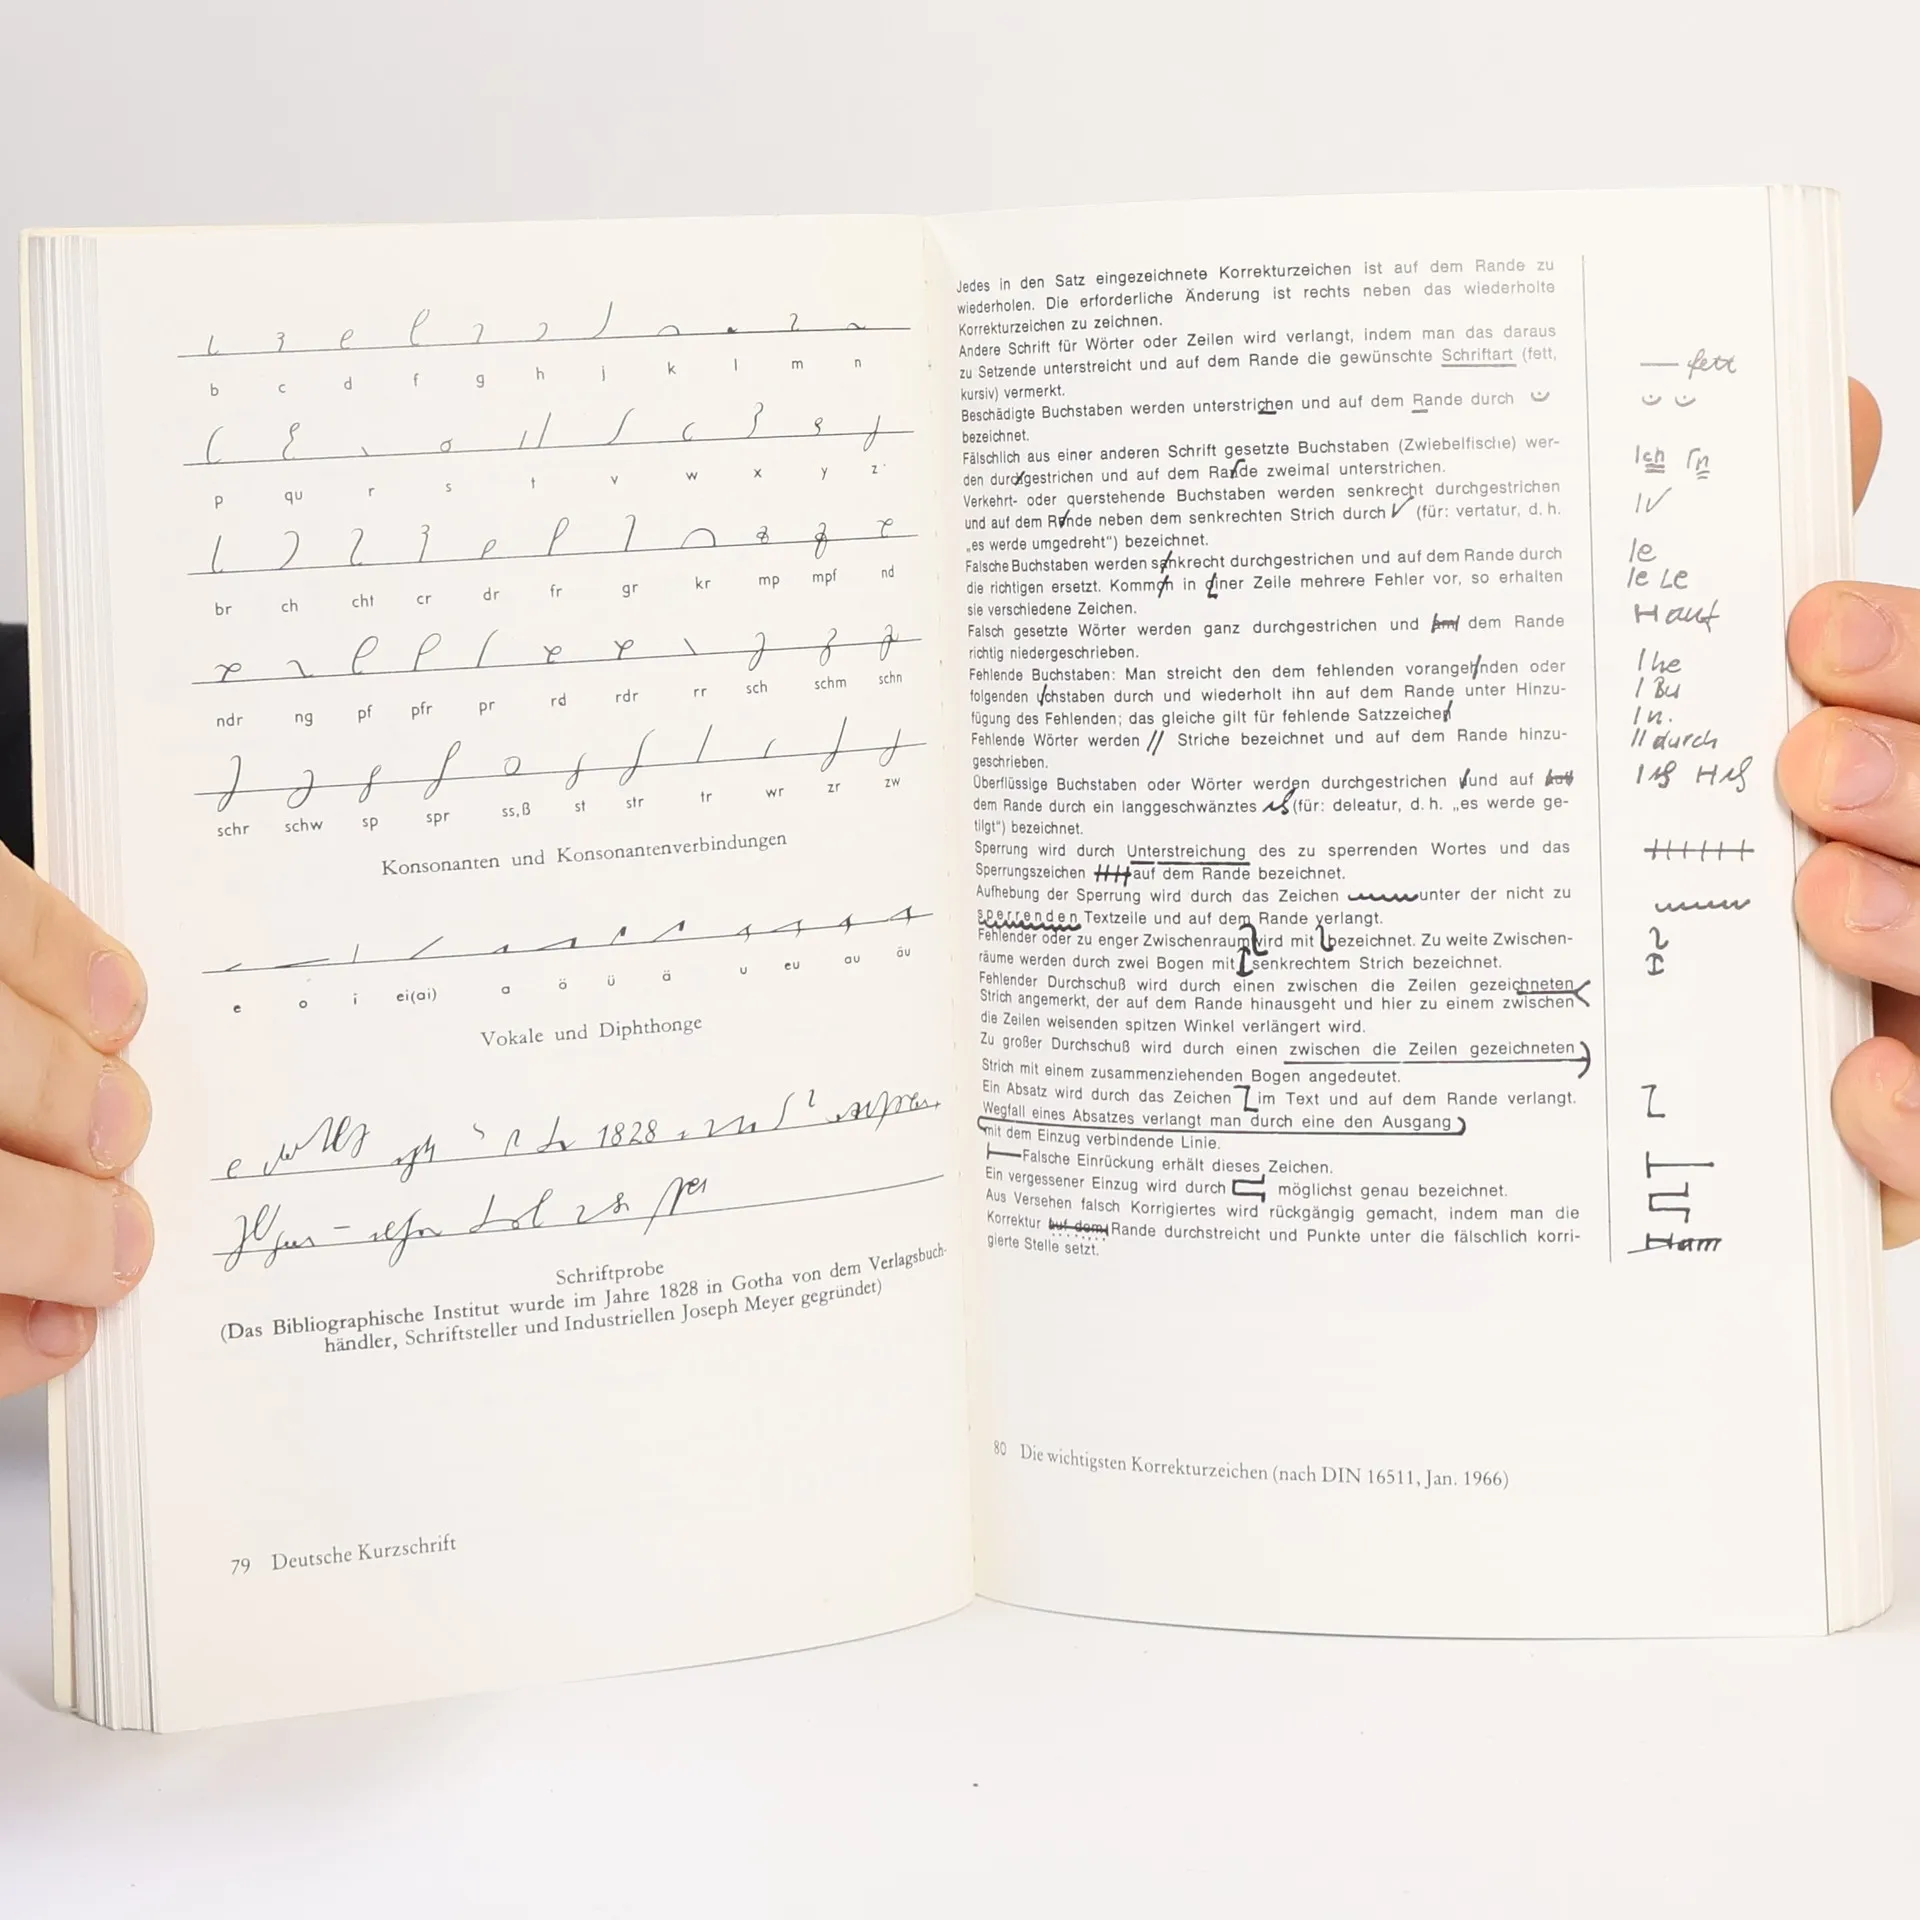 b c d f g h j k l m n
p qu r s t v w x y z
br ch cht cr dr fr gr kr mp mpf nd
ndr ng pf pfr pr rd rdr rr sch schm schn
schr schw sp spr ss,ß st str tr wr zr zw
Konsonanten und Konsonantenverbindungen
e o i ei(ai) a ö ü ä u eu au äu
Vokale und Diphthonge
1828
Schriftprobe
(Das Bibliographische Institut wurde im Jahre 1828 in Gotha von dem Verlagsbuch-
händler, Schriftsteller und Industriellen Joseph Meyer gegründet)
79 Deutsche Kurzschrift
Jedes in den Satz eingezeichnete Korrekturzeichen ist auf dem Rande zu
wiederholen. Die erforderliche Änderung ist rechts neben das wiederholte
Korrekturzeichen zu zeichnen.
Andere Schrift für Wörter oder Zeilen wird verlangt, indem man das daraus
zu Setzende unterstreicht und auf dem Rande die gewünschte Schriftart (fett, — fett
kursiv) vermerkt.
Beschädigte Buchstaben werden unterstrichen und auf dem Rande durch
bezeichnet.
Fälschlich aus einer anderen Schrift gesetzte Buchstaben (Zwiebelfische) wer-
den durchgestrichen und auf dem Rande zweimal unterstrichen. ch n
Verkehrt- oder querstehende Buchstaben werden senkrecht durchgestrichen
und auf dem Rande neben dem senkrechten Strich durch V (für: vertatur, d. h. V
„es werde umgedreht“) bezeichnet.
Falsche Buchstaben werden sankrecht durchgestrichen und auf dem Rande durch e
die richtigen ersetzt. Kommen in einer Zeile mehrere Fehler vor, so erhalten e e
sie verschiedene Zeichen.
Falsch gesetzte Wörter werden ganz durchgestrichen und am dem Rande auf
richtig niedergeschrieben.
Fehlende Buchstaben: Man streicht den dem fehlenden vorangehnden oder he
folgenden uchstaben durch und wiederholt ihn auf dem Rande unter Hinzu- Bu
fügung des Fehlenden; das gleiche gilt für fehlende Satzzeichen n.
Fehlende Wörter werden // Striche bezeichnet und auf dem Rande hinzu- // durch
geschrieben.
Überflüssige Buchstaben oder Wörter werden durchgestrichen und auf auf
dem Rande durch ein langgeschwänztes (für: deleatur, d. h. „es werde ge-
tilgt“) bezeichnet.
Sperrung wird durch Unterstreichung des zu sperrenden Wortes und das
Sperrungszeichen auf dem Rande bezeichnet.
Aufhebung der Sperrung wird durch das Zeichen unter der nicht zu
sperrenden Textzeile und auf dem Rande verlangt.
Fehlender oder zu enger Zwischenraum wird mit bezeichnet. Zu weite Zwischen-
räume werden durch zwei Bogen mit senkrechtem Strich bezeichnet.
Fehlender Durchschuß wird durch einen zwischen die Zeilen gezeichneten
Strich angemerkt, der auf dem Rande hinausgeht und hier zu einem zwischen
die Zeilen weisenden spitzen Winkel verlängert wird.
Zu großer Durchschuß wird durch einen zwischen die Zeilen gezeichneten
Strich mit einem zusammenziehenden Bogen angedeutet.
Ein Absatz wird durch das Zeichen im Text und auf dem Rande verlangt.
Wegfall eines Absatzes verlangt man durch eine den Ausgang
mit dem Einzug verbindende Linie.
Falsche Einrückung erhält dieses Zeichen.
Ein vergessener Einzug wird durch möglichst genau bezeichnet.
Aus Versehen falsch Korrigiertes wird rückgängig gemacht, indem man die
Korrektur auf dem Rande durchstreicht und Punkte unter die fälschlich korri-
gierte Stelle setzt.
80 Die wichtigsten Korrekturzeichen (nach DIN 16511, Jan. 1966)